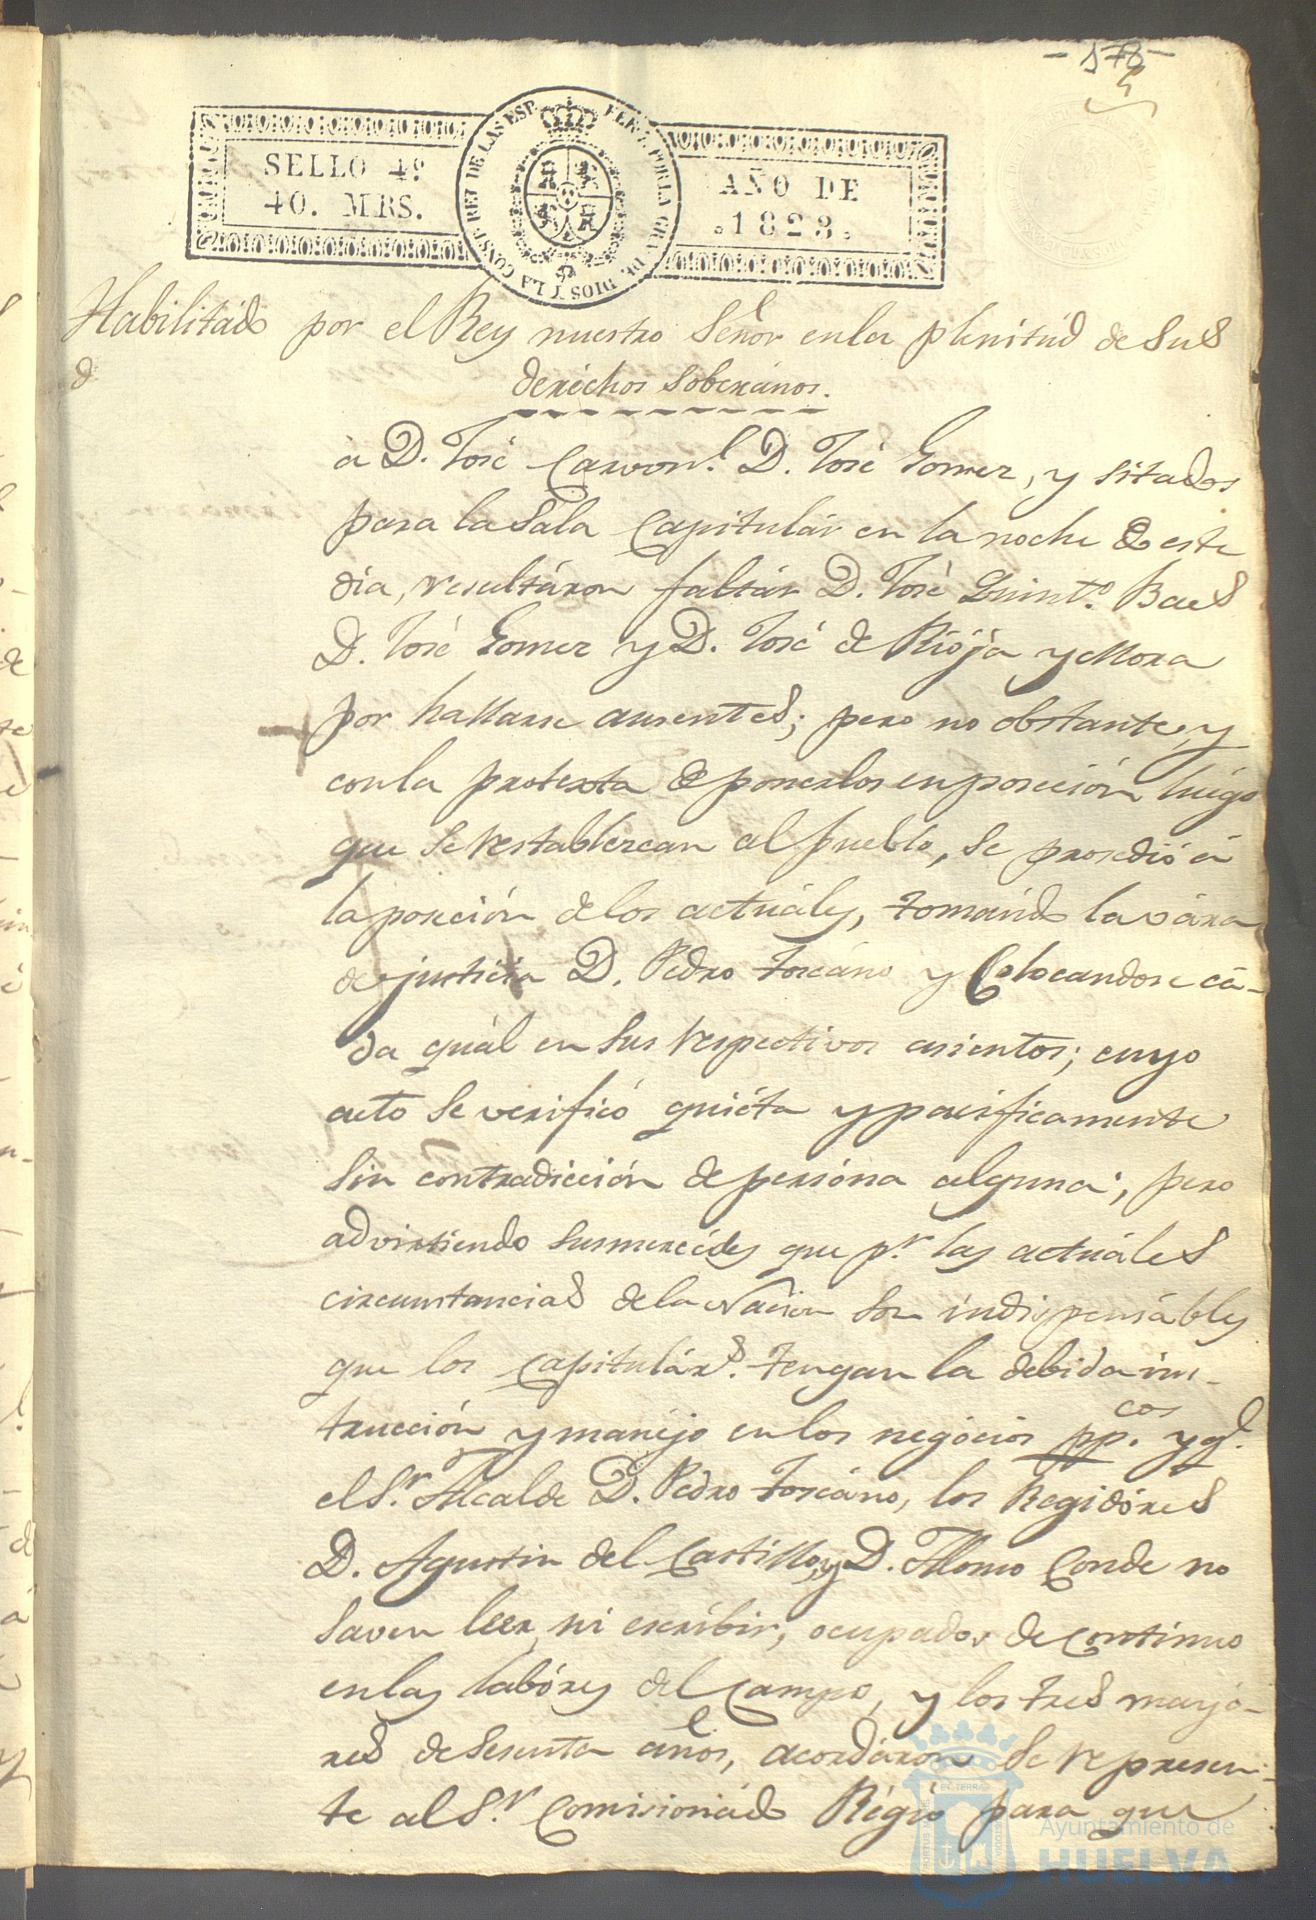 - 178 -
SELLO 4º
40. MRS.
FER. 7. POR LA GRA. DE DIOS Y LA CONST. REY DE LAS ESP.
AÑO DE
.1823.
Habilitado por el Rey nuestro Señor en la plenitud de sus
derechos soberanos.
à D. José Carvonl. D. José Gomez, y sitados
para la Sala Capitulár en la noche de este
dia, resultáron faltár D. José Quintº. Baes
D. José Gomez y D. José de Riója y Mora
por hallarse ausentes; pero no obstante, y
con la protexta de ponerlos en poseción luégo
que se restablezcan al pueblo, se prosedió á
la poseción de los actuáles, tomándo la vára
de justicia D. Pedro Toscáno y Colocandose cá-
da quál en sus respectivos asientos; cuyo
acto se verificó quiéta y pacificamente
sin contradicción de persóna alguna; pero
advirtiendo susmercédes que pr. las actuáles
circunstancias de la Nación son indispensábles
que los capituláxs. tengan la debida ins-
trucción y manéjo en los negócios ppcos. y q.e
el Sr. Alcalde D. Pedro Toscáno, los Regidóres
D. Agustin del Castillo, y D. Alonso Conde no
saven leer, ni escribir, ocupados de continuo
en las labóres del Campo, y los tres mayó-
res de sesenta años, acordáron se represen-
te al Sr. Comisionádo Régio para que
Ayuntamiento de
HUELVA